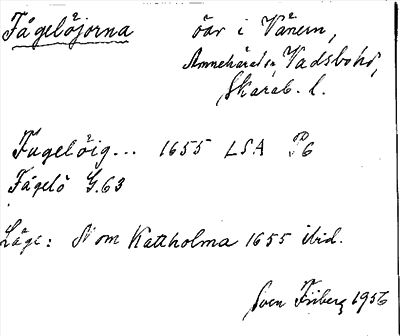 Fågelöjorna öar i Vänern,
Amnehärad sn, Vadsbo hd,
Skarab. l.
Fugelöig... 1655 LSA P6
Fågelö G.63
Läge: N om Kattholma 1655 ibid.
Sven Friberg 1956